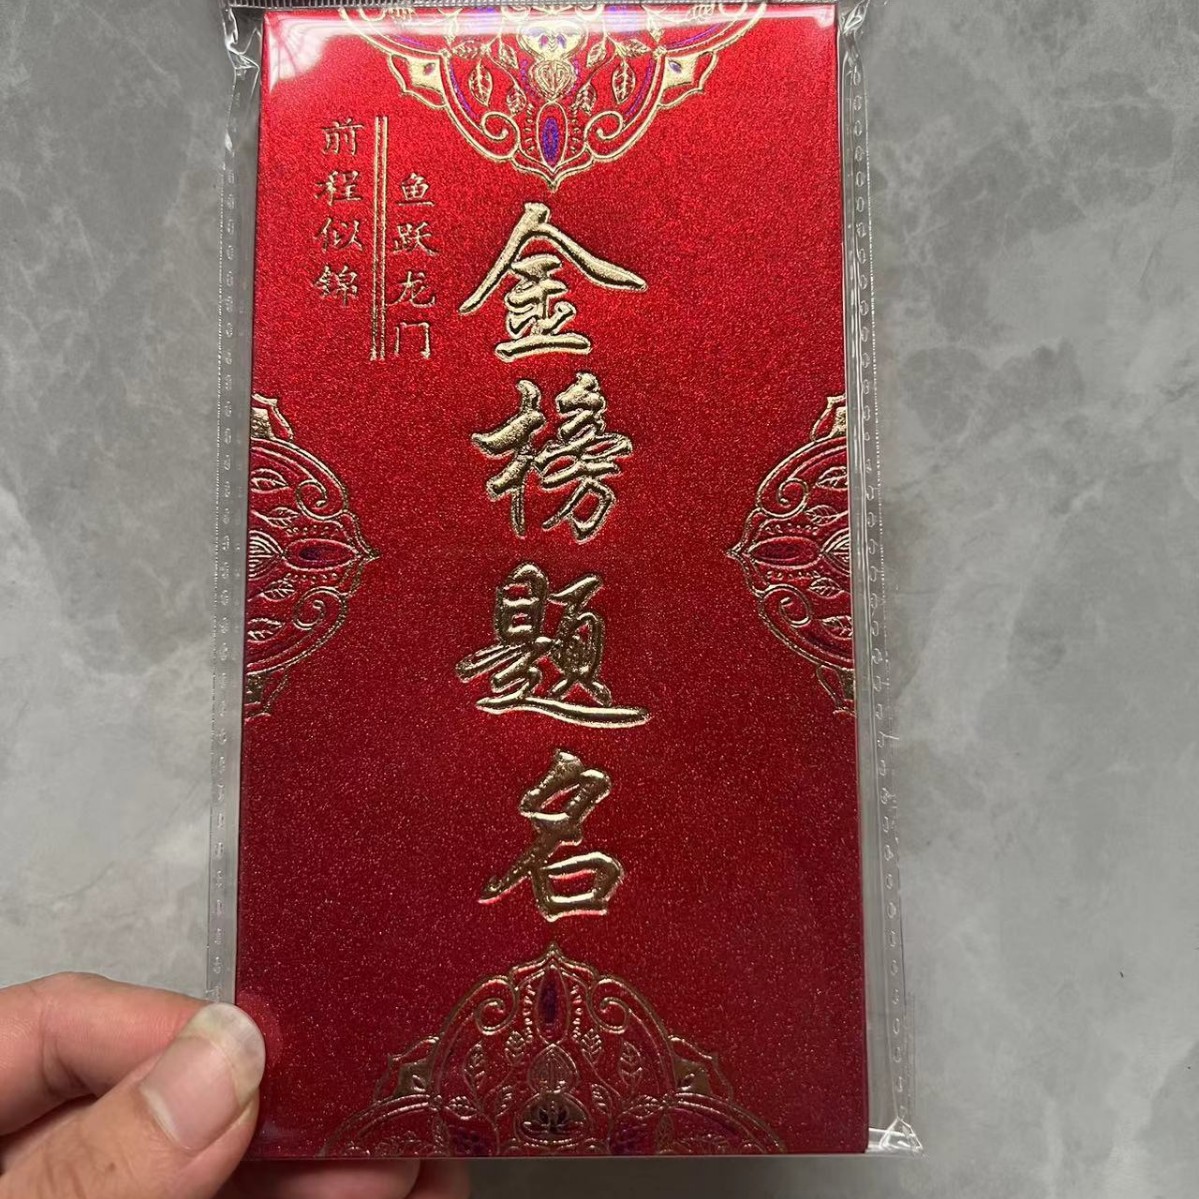 金榜题名
鱼跃龙门
前程似锦